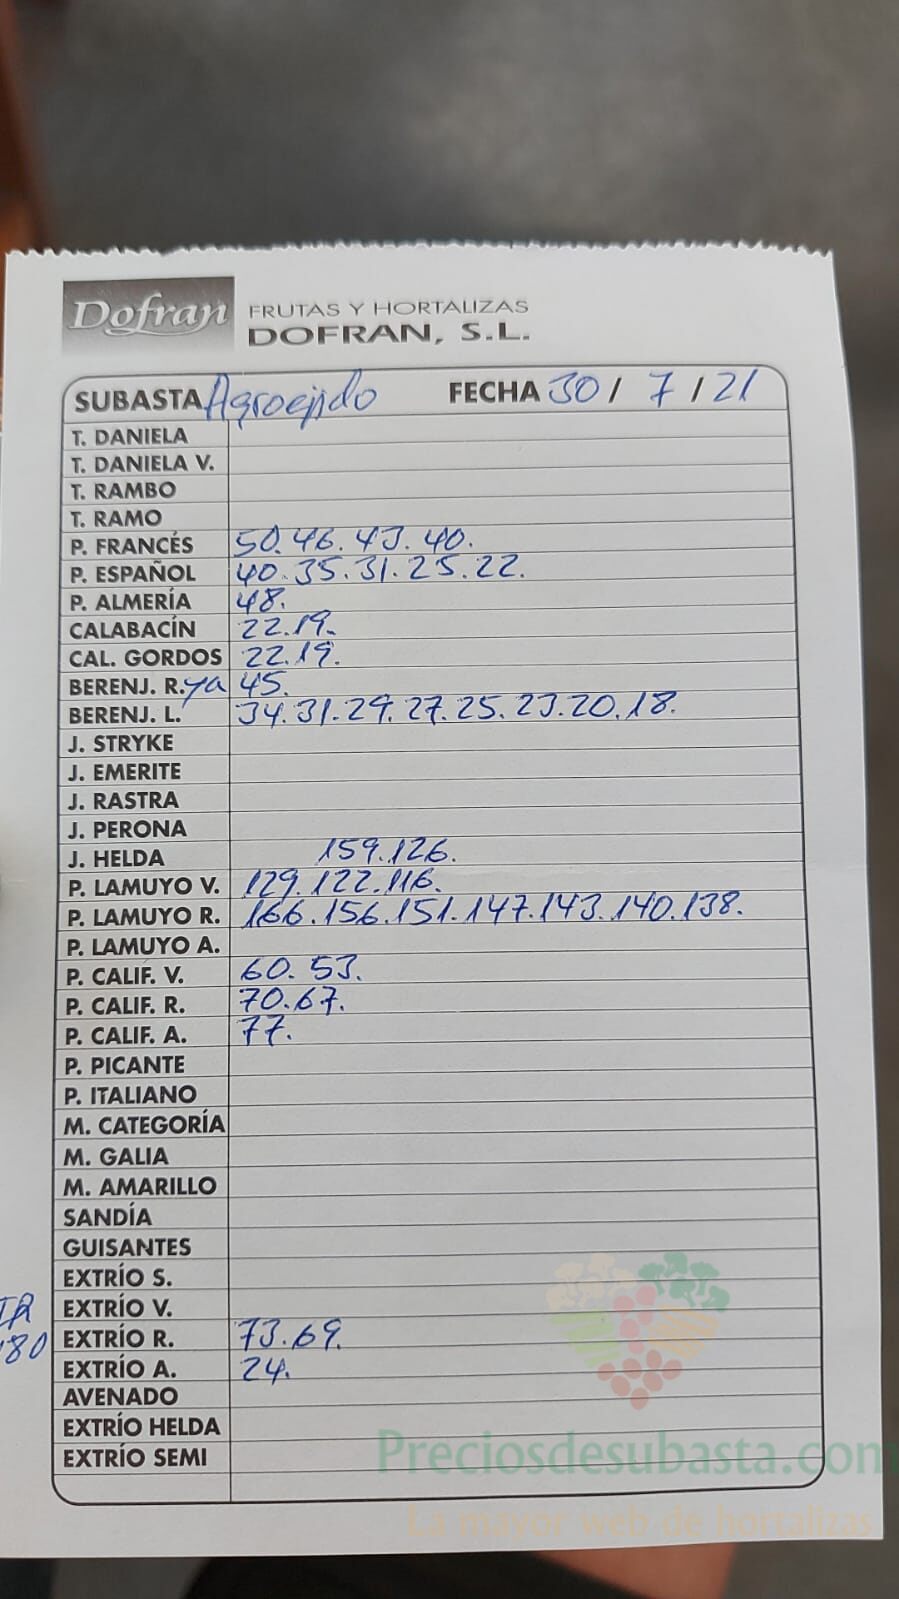 Dofran FRUTAS Y HORTALIZAS
DOFRAN, S.L.
SUBASTA Agroejido FECHA 30 / 7 / 21
T. DANIELA
T. DANIELA V.
T. RAMBO
T. RAMO
P. FRANCÉS 50. 46. 43. 40.
P. ESPAÑOL 40. 35. 31. 25. 22.
P. ALMERÍA 48.
CALABACÍN 22. 19.
CAL. GORDOS 22. 19.
BERENJ. R. ya 45.
BERENJ. L. 34. 31. 29. 27. 25. 23. 20. 18.
J. STRYKE
J. EMERITE
J. RASTRA
J. PERONA
J. HELDA 159. 126.
P. LAMUYO V. 129. 122. 116.
P. LAMUYO R. 166. 156. 151. 147. 143. 140. 138.
P. LAMUYO A.
P. CALIF. V. 60. 53.
P. CALIF. R. 70. 67.
P. CALIF. A. 77.
P. PICANTE
P. ITALIANO
M. CATEGORÍA
M. GALIA
M. AMARILLO
SANDÍA
GUISANTES
EXTRÍO S.
EXTRÍO V.
80 EXTRÍO R. 73. 69.
EXTRÍO A. 24.
AVENADO
EXTRÍO HELDA
EXTRÍO SEMI
Preciosdesubasta.com
La mayor web de hortalizas